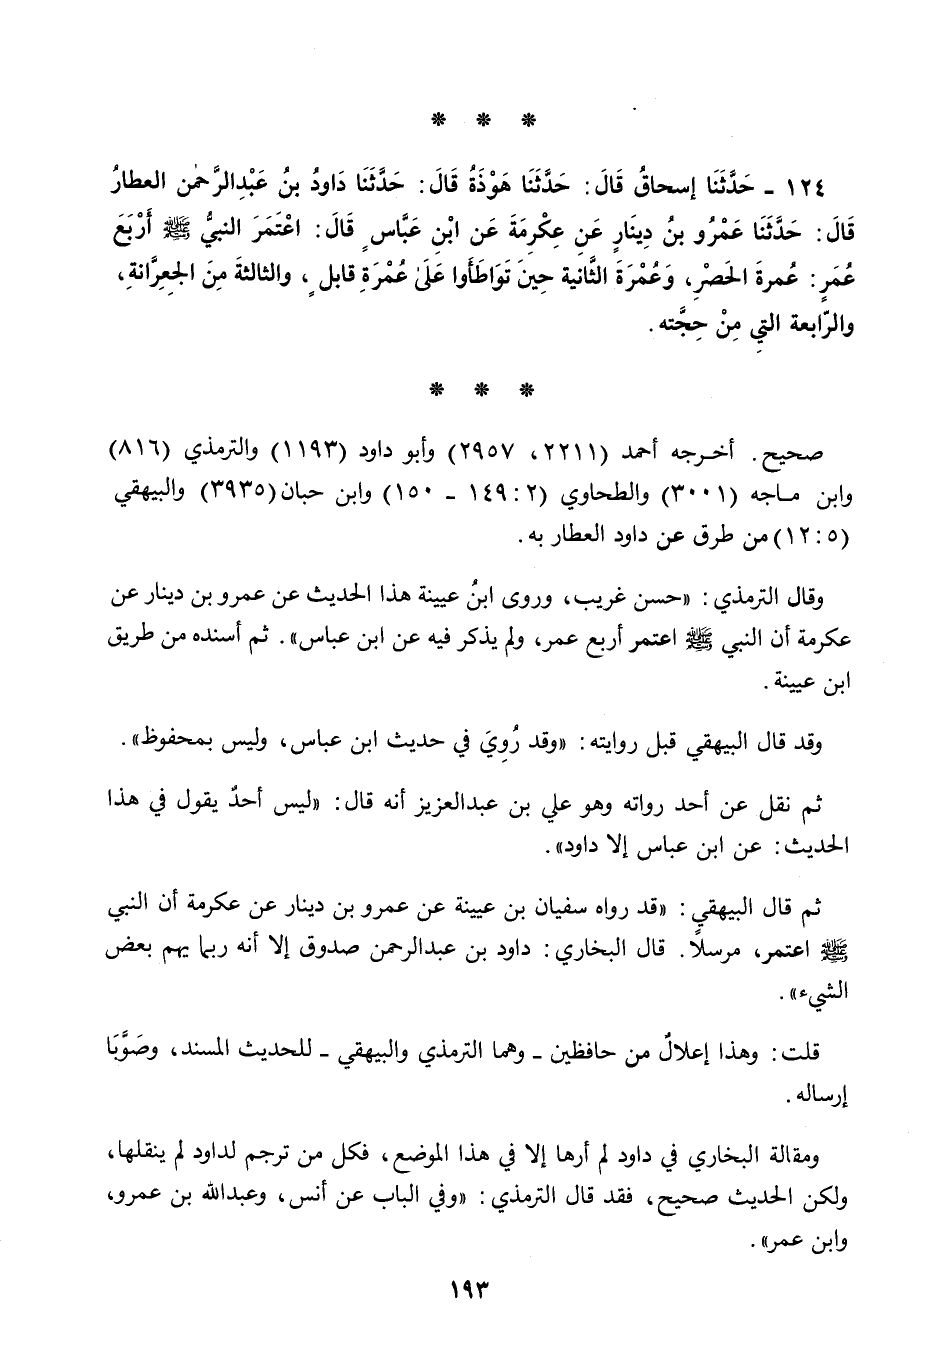 * * *
١٢٤ ـ حَدَّثَنَا إسحاقُ قَالَ: حَدَّثَنَا هَوْذَةُ قَالَ: حَدَّثَنَا دَاودُ بنُ عَبْدِالرَّحمٰن العطارُ
قَالَ: حَدَّثَنَا عَمْرُو بنُ دِينَارٍ عَن عِكْرِمَةَ عَن ابْنِ عَبَّاسٍ قَالَ: اعْتَمَرَ النبيُّ ﷺ أَرْبَعَ
عُمَرٍ: عُمرةَ الحَصْرِ، وَعُمْرَةَ الثَّانية حِينَ تَوَاطَأَوا عَلَىٰ عُمْرَةِ قابلٍ، والثالثةَ مِنَ الجِعِرَّانةِ،
والرّابعة التي مِنْ حِجَّته.
* * *
صحيح. أخرجه أحمد (٢٢١١، ٢٩٥٧) وأبو داود (١١٩٣) والترمذي (٨١٦)
وابن ماجه (٣٠٠١) والطحاوي (٢: ١٤٩ ـ ١٥٠) وابن حبان (٣٩٣٥) والبيهقي
(١٢:٥) من طرق عن داود العطار به.
وقال الترمذي: «حسن غريب، وروى ابنُ عيينة هذا الحديث عن عمرو بن دينار عن
عكرمة أن النبي ﷺ اعتمر أربع عمر، ولم يذكر فيه عن ابن عباس». ثم أسنده من طريق
ابن عيينة.
وقد قال البيهقي قبل روايته: «وقد رُوِيَ في حديث ابن عباس، وليس بمحفوظ».
ثم نقل عن أحد رواته وهو علي بن عبدالعزيز أنه قال: «ليس أحدٌ يقول في هذا
الحديث: عن ابن عباس إلا داود».
ثم قال البيهقي: «قد رواه سفيان بن عيينة عن عمرو بن دينار عن عكرمة أن النبي
ﷺ اعتمر، مرسلًا. قال البخاري: داود بن عبدالرحمن صدوق إلا أنه ربما يهم بعض
الشيء».
قلت: وهذا إعلالٌ من حافظين ـ وهما الترمذي والبيهقي ـ للحديث المسند، وصَوَّبَا
إرساله.
ومقالة البخاري في داود لم أرها إلا في هذا الموضع، فكل من ترجم لداود لم ينقلها،
ولكن الحديث صحيح، فقد قال الترمذي: «وفي الباب عن أنس، وعبدالله بن عمرو،
وابن عمر».
١٩٣